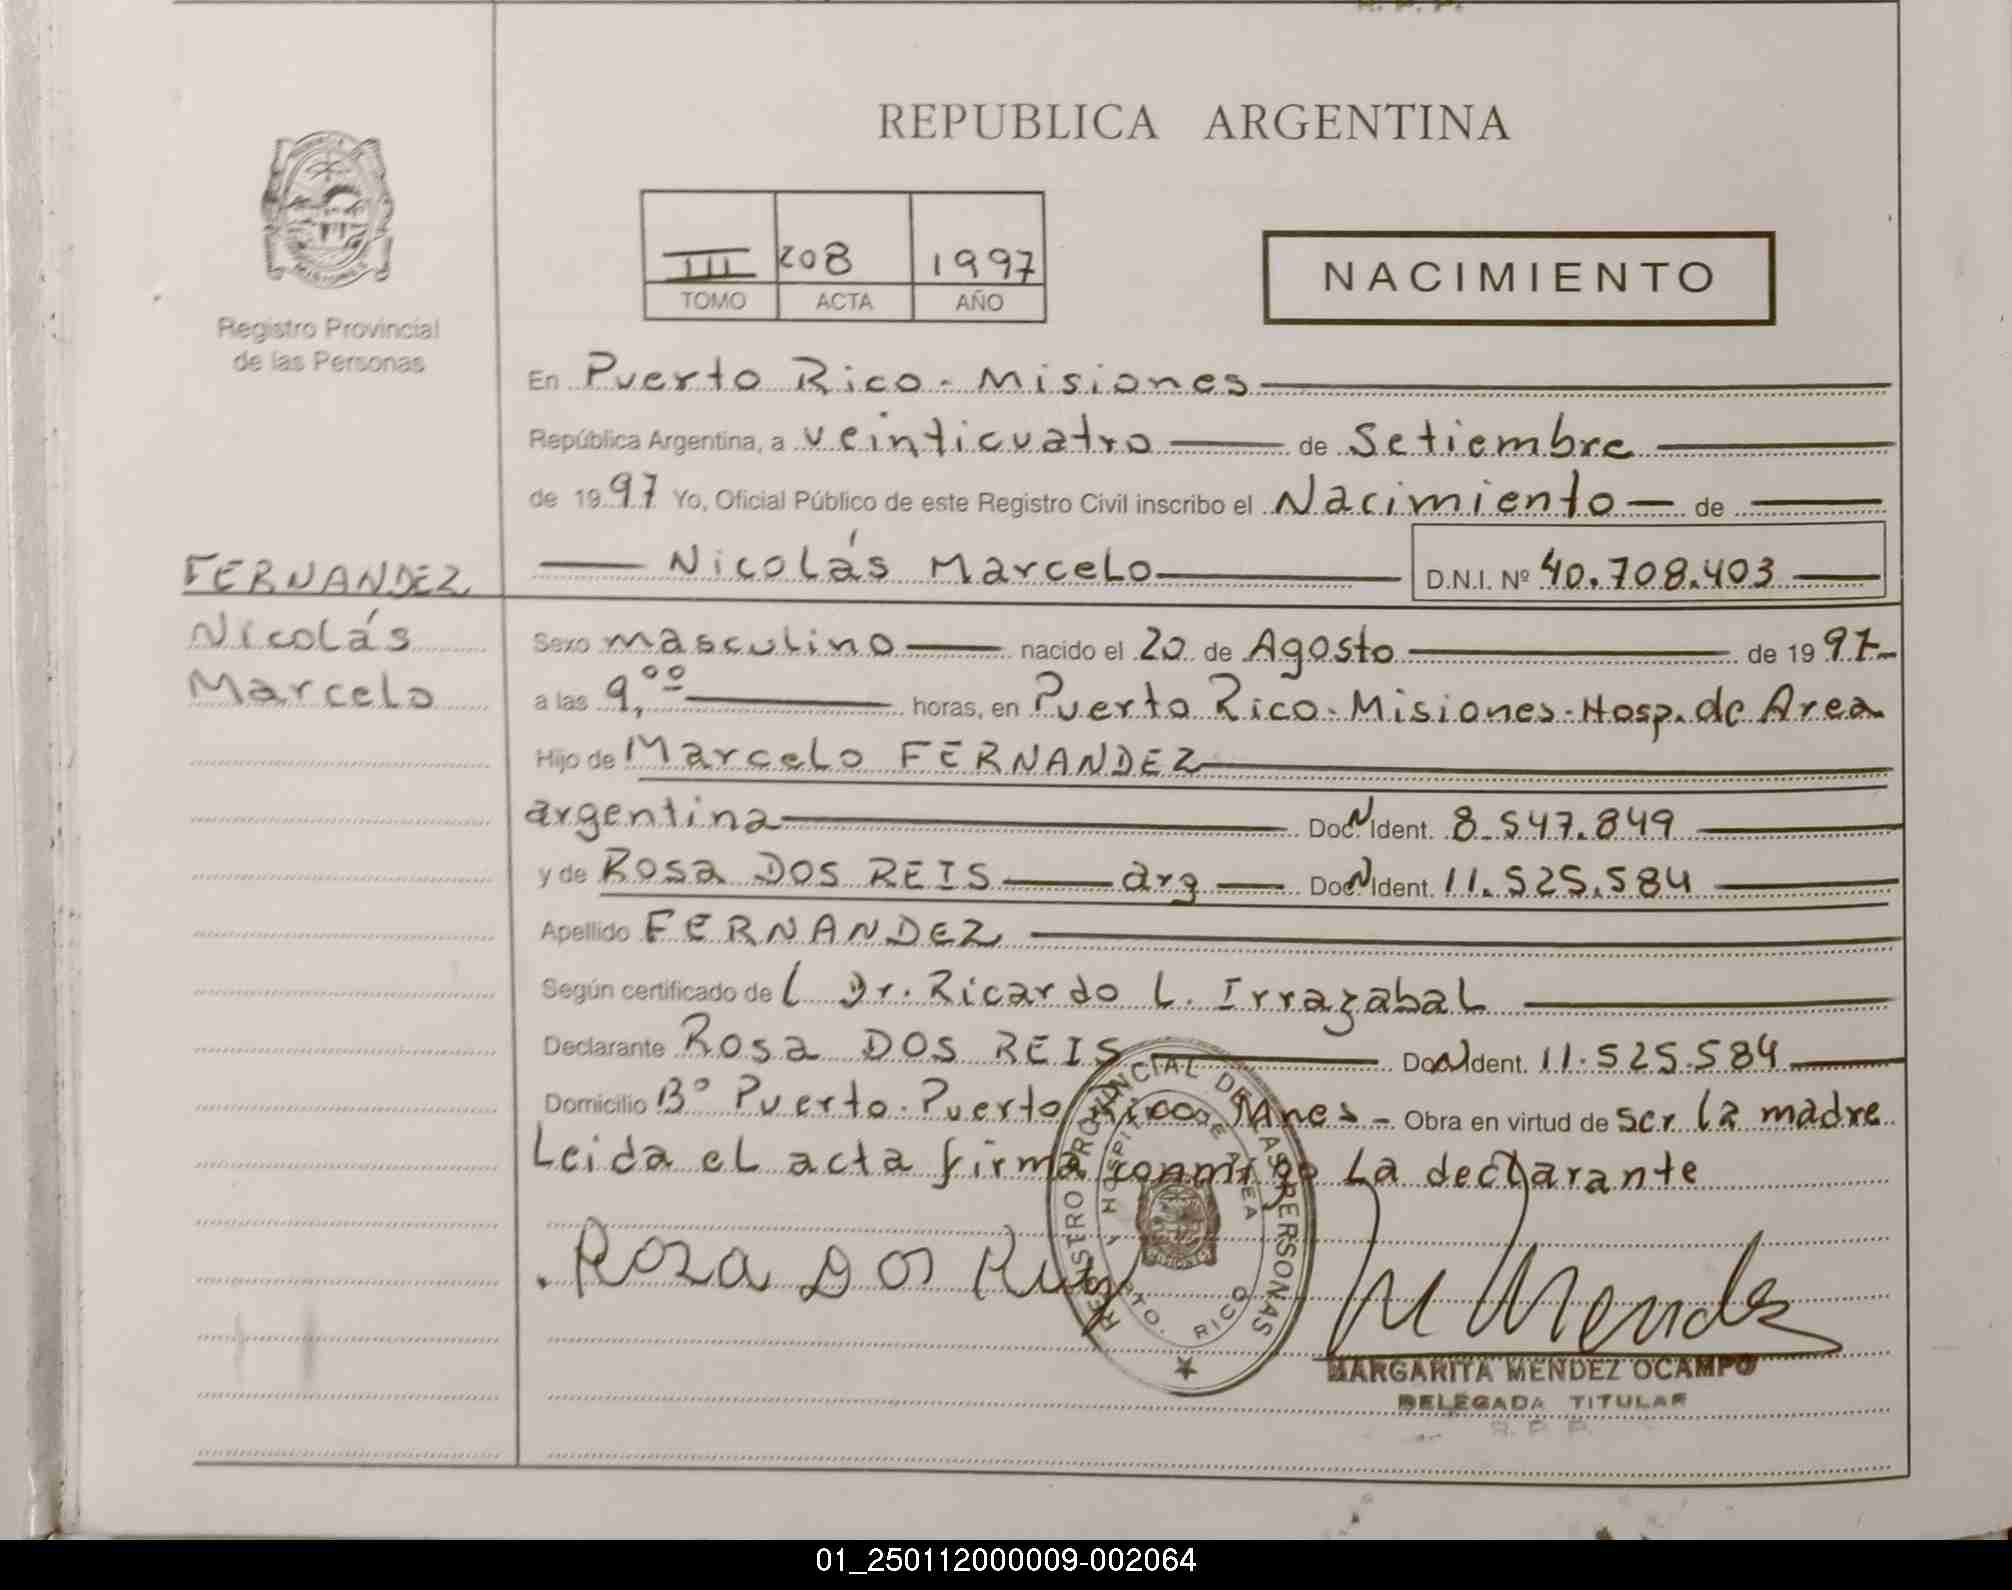 REPUBLICA ARGENTINA
MISIONES
Registro Provincial
de las Personas
III 208 1997
TOMO ACTA AÑO
NACIMIENTO
En Puerto Rico - Misiones
República Argentina, a veinticuatro de Setiembre
de 1997 Yo, Oficial Público de este Registro Civil inscribo el Nacimiento de
Nicolás Marcelo D.N.I. Nº 40.708.403
FERNANDEZ
Nicolás
Marcelo
Sexo masculino nacido el 20 de Agosto de 1997
a las 9,ºº horas, en Puerto Rico - Misiones - Hosp. de Area
Hijo de Marcelo FERNANDEZ
argentina Doc. N Ident. 8.547.849
y de Rosa DOS REIS arg Doc. N Ident. 11.525.584
Apellido FERNANDEZ
Según certificado de L Dr. Ricardo L. Irrazabal
Declarante Rosa DOS REIS Doc N Ident. 11.525.584
Domicilio Bº Puerto - Puerto Rico Mnes - Obra en virtud de ser la madre
Leida el acta firma conmigo la declarante
Roza Dos Reis
M Mendez
REGISTRO PROVINCIAL DE LAS PERSONAS
HOSPITAL DE AREA
PTO. RICO
MARGARITA MENDEZ OCAMPO
DELEGADA TITULAR
R. P. P.
01_250112000009-002064